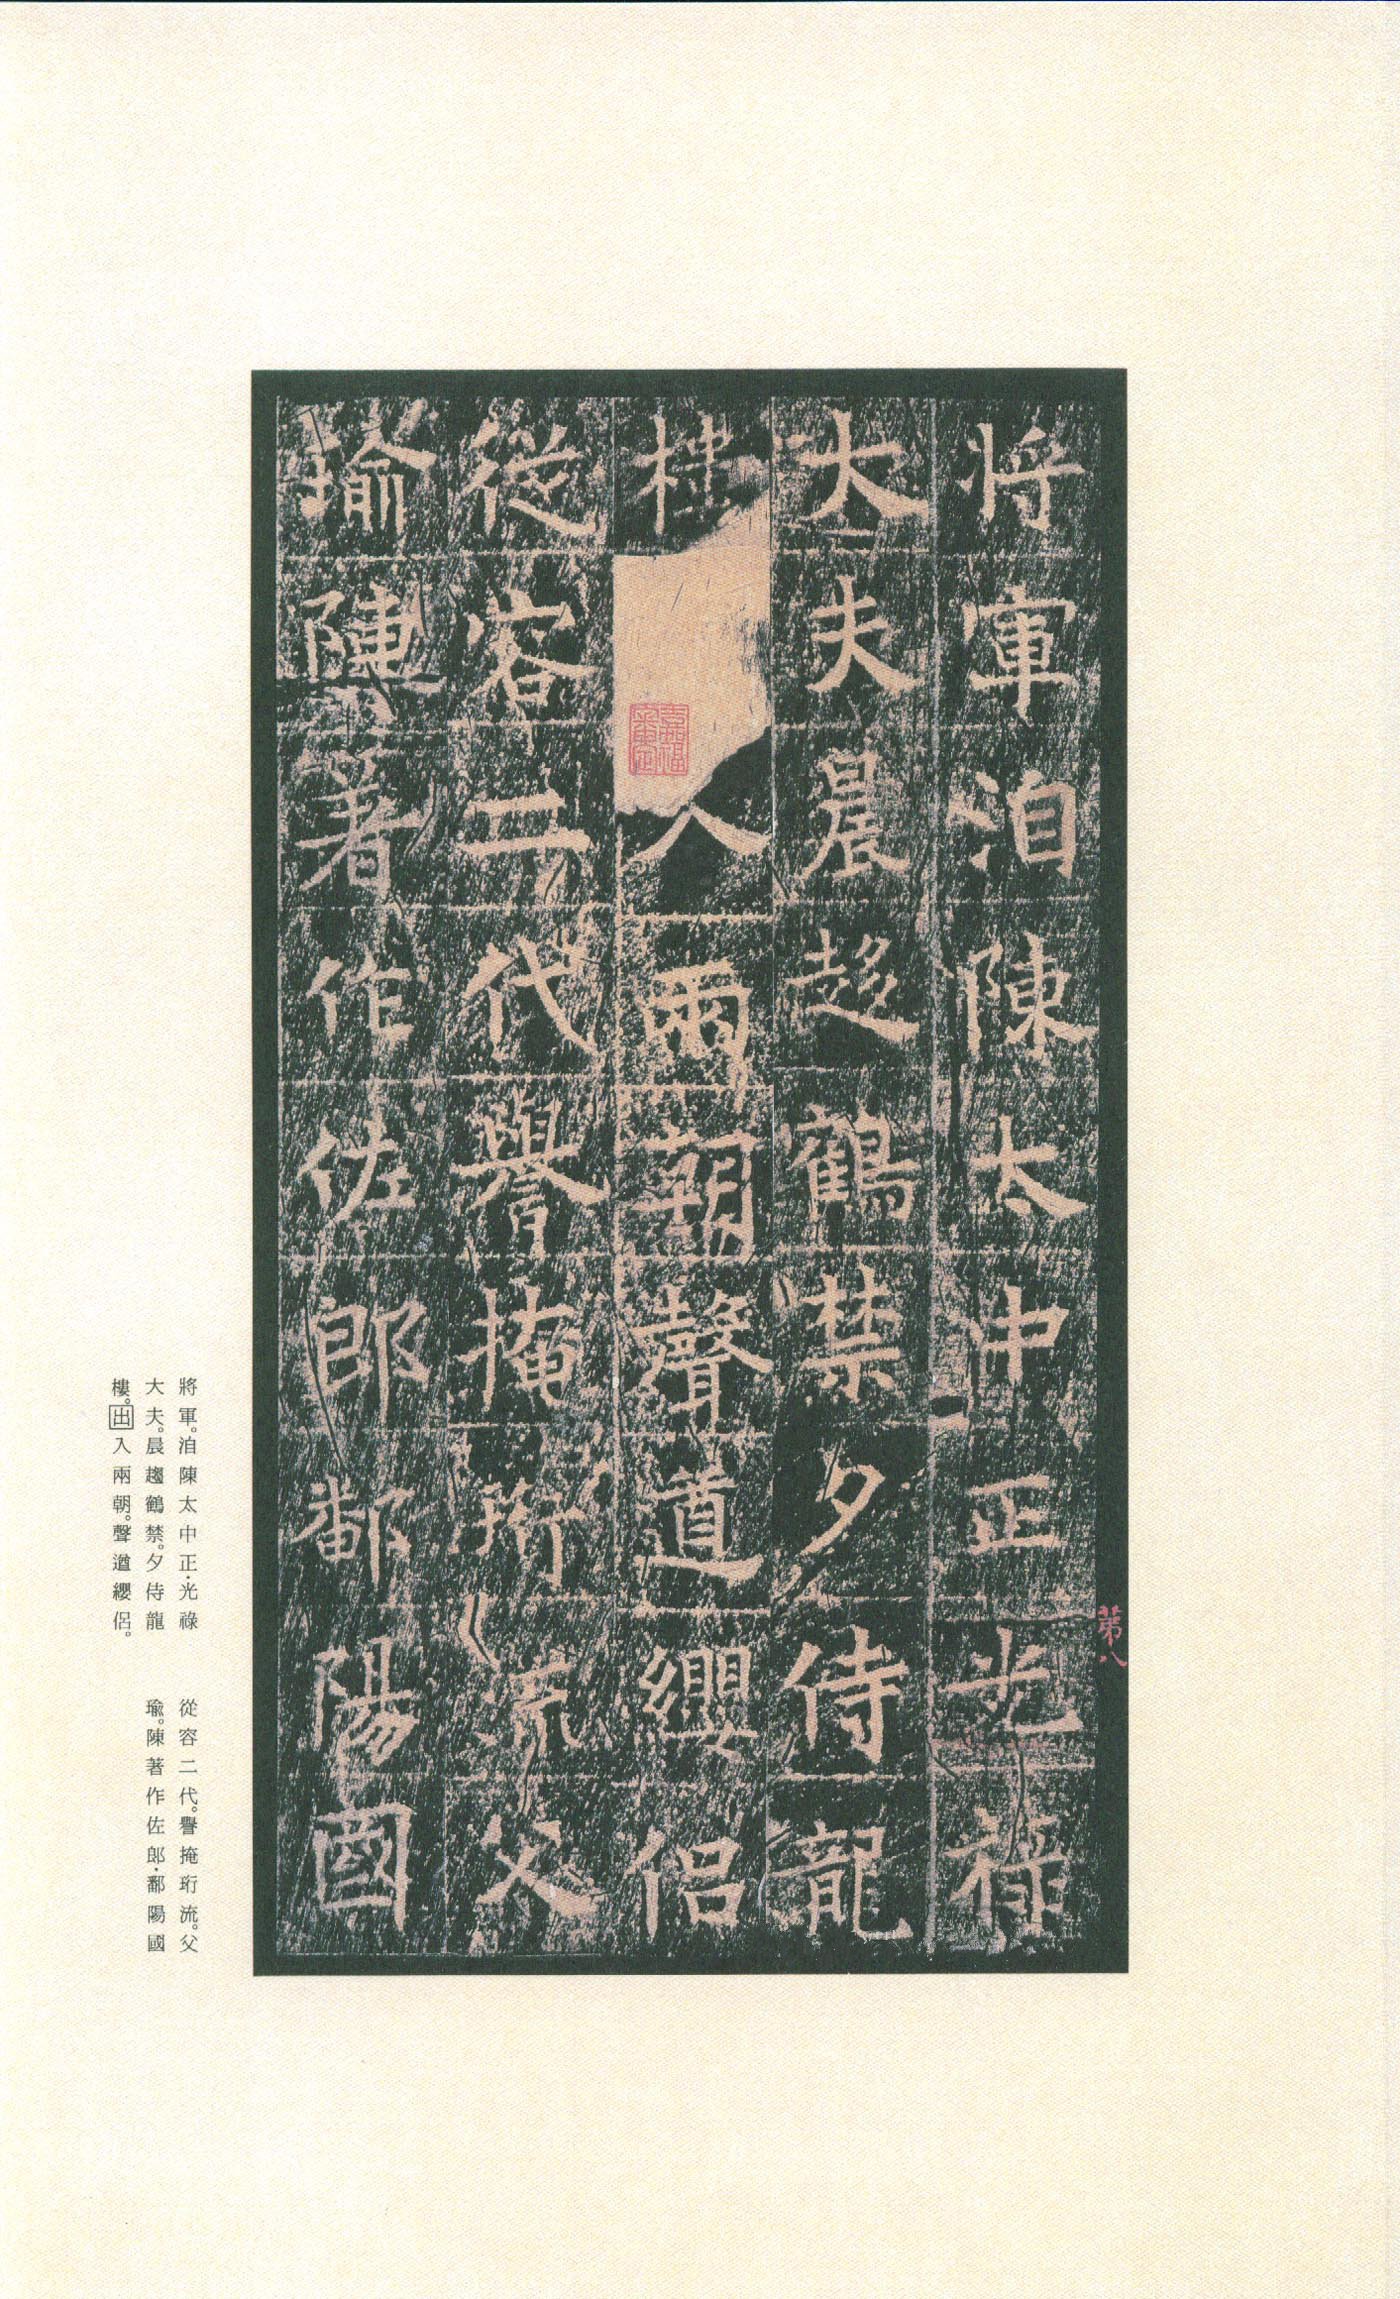 將軍洎陳太中正光祿
大夫晨趨鶴禁夕侍龍
樓入兩朝聲遒纓侶
從容二代譽掩珩流父
瑜陳著作佐郎鄱陽國
第八
將軍。洎陳太中正·光祿
大夫。晨趨鶴禁。夕侍龍
樓。出入兩朝。聲遒纓侶。
從容二代。譽掩珩流。父
瑜。陳著作佐郎·鄱陽國